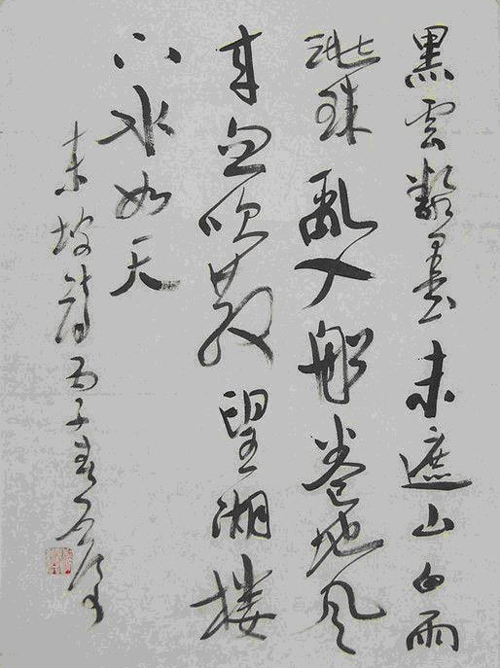 黑雲翻墨未遮山白雨
跳珠亂入船卷地風
来忽吹散望湖楼
下水如天
东坡诗丙子春